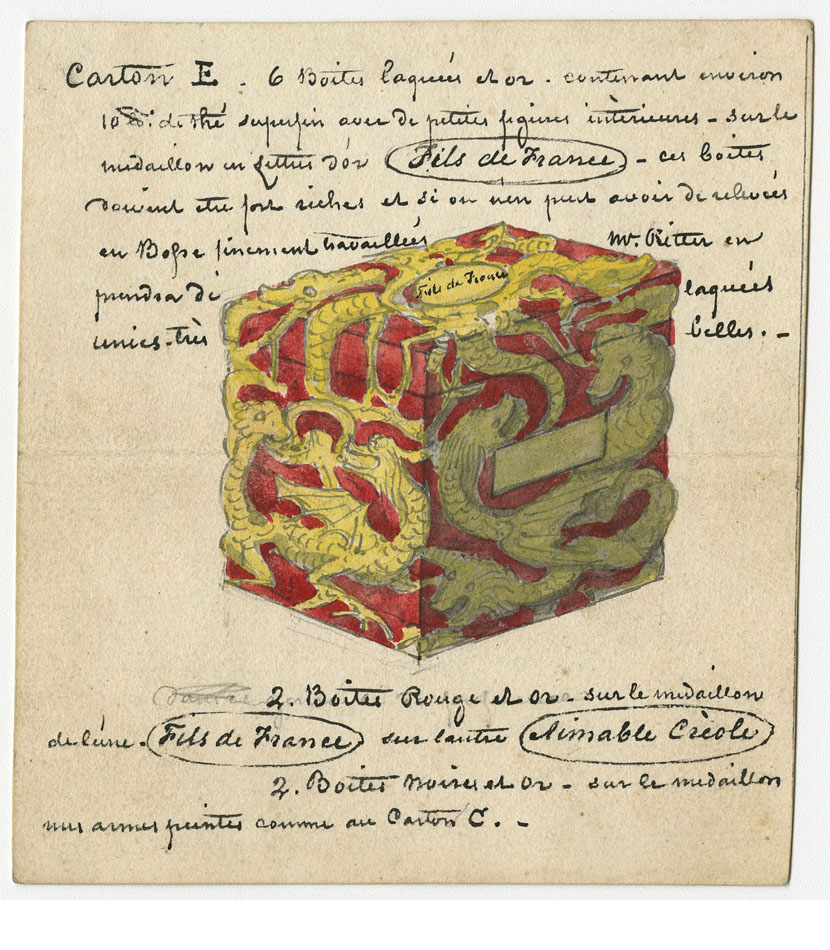 Carton E. 6 Boites laquées et or. contenant environ
10 de thé superfin avec de petites figures intèrieures - sur le
medaillon en Lettres d'or Fils de France - ces boites
doivent etre fort riches et si on n'en peut avoir de relevées
en Bosse finement travaillées Mr. Ritter en
prendra de laquées
unies - très belles. -
Fils de France
2. Boites Rouge et or - sur le medaillon
de l'une. Fils de France sur l'autre Aimable Crèole
2. Boites noires et or - sur le medaillon
mes armes peintes comme au Carton C. -